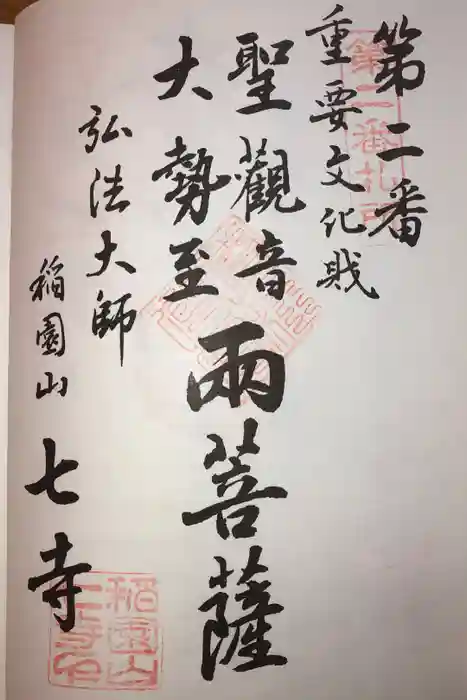 第二番
重要文化財
聖觀音
大勢至
兩菩薩
弘法大師
稻園山
七寺
第二番札所
稲園山
七寺印